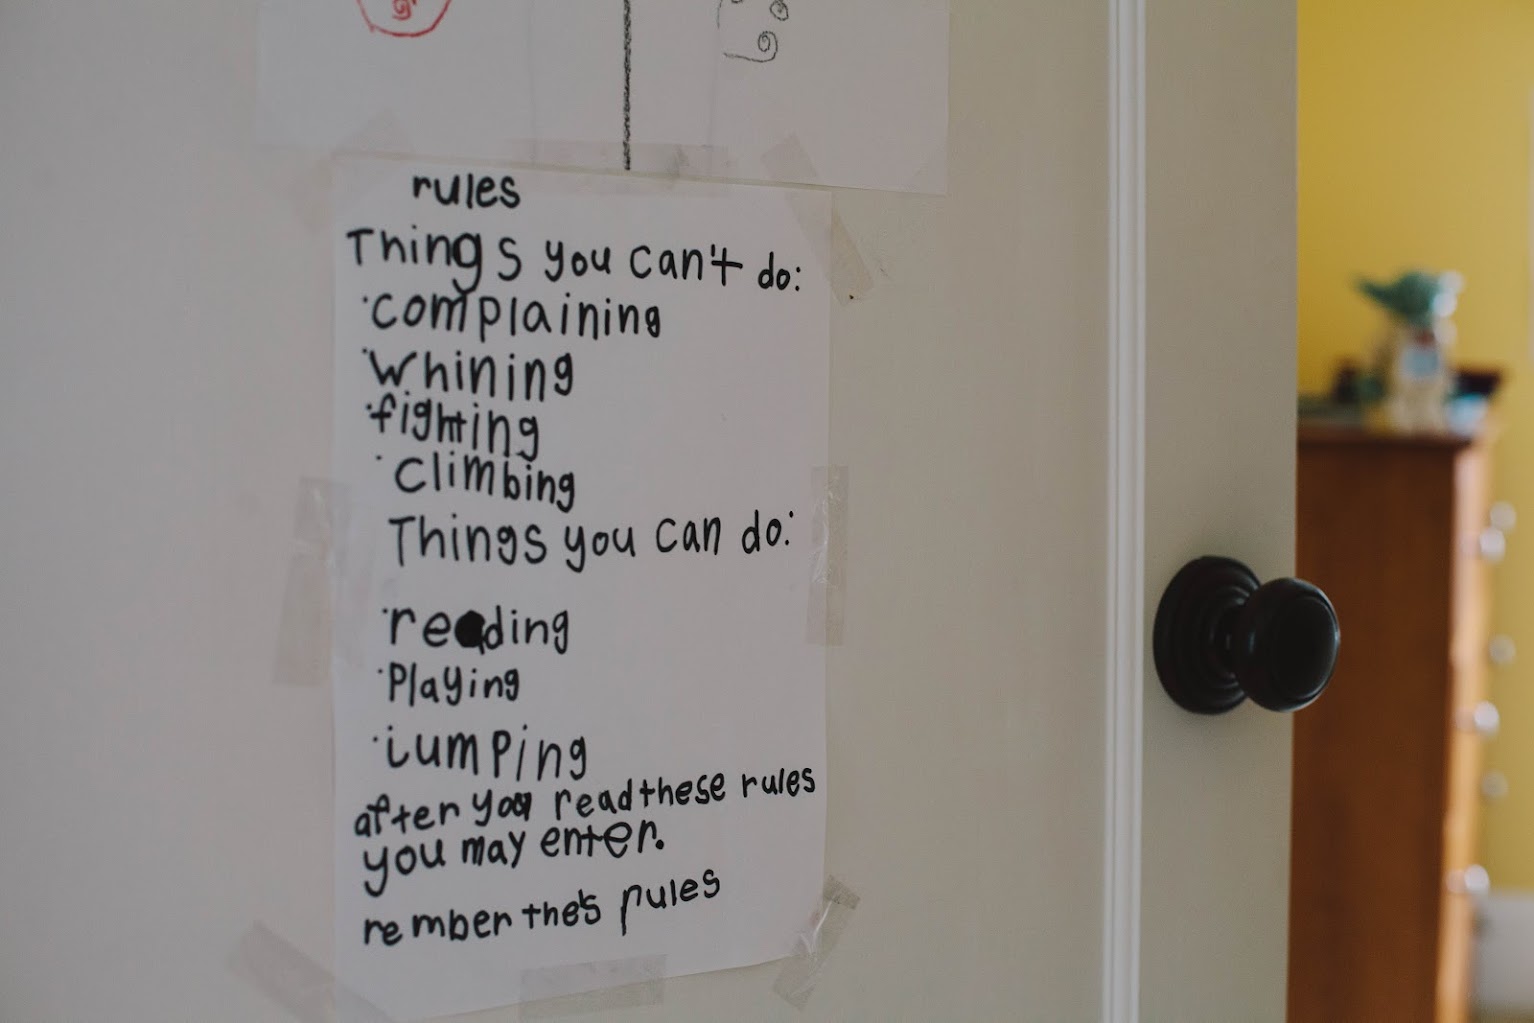 rules
Things you can't do:
·complaining
·Whining
·fighting
·climbing
Things you can do:
·reading
·Playing
·iumping
after you read these rules
you may enter.
rember thes rules